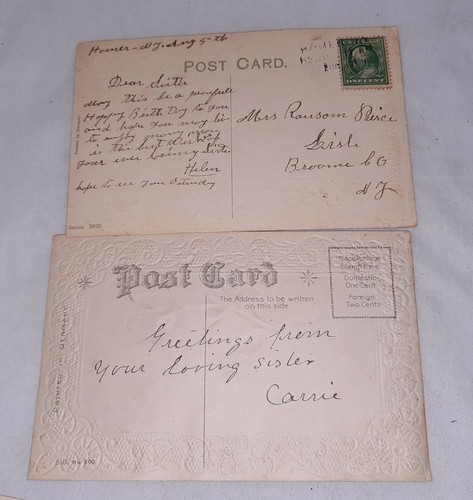 Homer - N.Y. Aug 5-th
POST CARD.
Dear Sister
May this be a
Happy Birth Day to You
and hope You may live
to enjoy many more
is the best wishes of
Your ever loving Sister
Helen
hope to see you Saturday
Mrs Ransom Pierce
Lisle
Broome Co
N Y
HOMER
ONE CENT
Series 3600
Post Card
The Address to be written
on this side.
Place Postage
Stamp Here
Domestic
One Cent
Foreign
Two Cents
PRINTED IN GERMANY
Greetings from
Your loving sister
Carrie